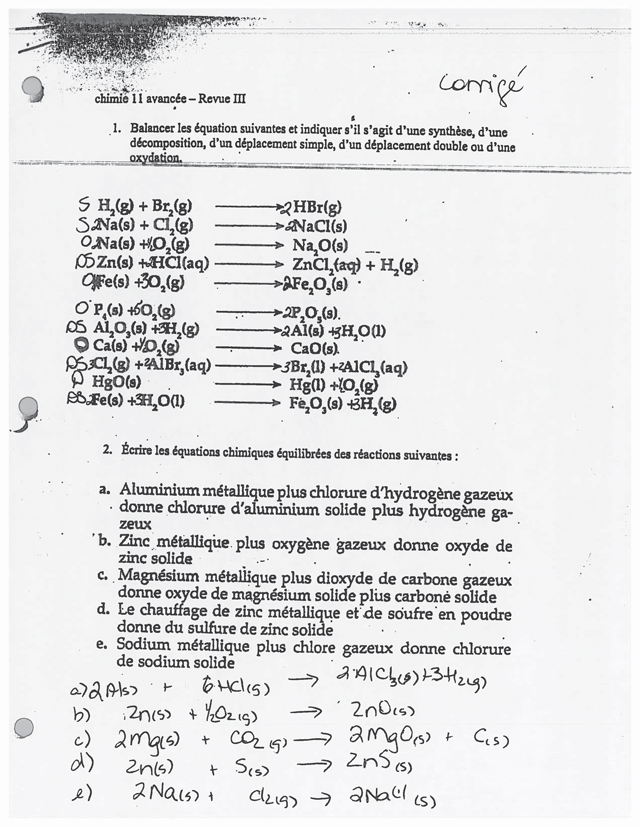 corrigé
chimie 11 avancée – Revue III
1. Balancer les équation suivantes et indiquer s'il s'agit d'une synthèse, d'une
décomposition, d'un déplacement simple, d'un déplacement double ou d'une
oxydation.
S H₂(g) + Br₂(g) → 2HBr(g)
S 2Na(s) + Cl₂(g) → 2NaCl(s)
O 2Na(s) + ½O₂(g) → Na₂O(s)
DS Zn(s) + 2HCl(aq) → ZnCl₂(aq) + H₂(g)
O 4Fe(s) + 3O₂(g) → 2Fe₂O₃(s)
O P₄(s) + 5O₂(g) → 2P₂O₅(s).
DS Al₂O₃(s) + 3H₂(g) → 2Al(s) + 3H₂O(l)
O Ca(s) + ½O₂(g) → CaO(s).
DS 3Cl₂(g) + 2AlBr₃(aq) → 3Br₂(l) + 2AlCl₃(aq)
D HgO(s) → Hg(l) + ½O₂(g)
DS 2Fe(s) + 3H₂O(l) → Fe₂O₃(s) + 3H₂(g)
2. Écrire les équations chimiques équilibrées des réactions suivantes :
a. Aluminium métallique plus chlorure d'hydrogène gazeux
donne chlorure d'aluminium solide plus hydrogène ga-
zeux
b. Zinc métallique plus oxygène gazeux donne oxyde de
zinc solide
c. Magnésium métallique plus dioxyde de carbone gazeux
donne oxyde de magnésium solide plus carbone solide
d. Le chauffage de zinc métallique et de soufre en poudre
donne du sulfure de zinc solide
e. Sodium métallique plus chlore gazeux donne chlorure
de sodium solide
a) 2Al(s) + 6HCl(g) → 2AlCl₃(s) + 3H₂(g)
b) Zn(s) + ½O₂(g) → ZnO(s)
c) 2Mg(s) + CO₂(g) → 2MgO(s) + C(s)
d) Zn(s) + S(s) → ZnS(s)
e) 2Na(s) + Cl₂(g) → 2NaCl(s)